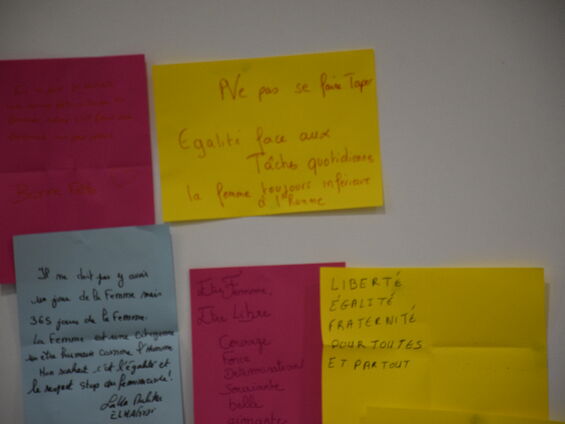 Bonne Fête
Ne pas se faire Taper
Egalité face aux
Tâches quotidienne
la femme toujours inférieure
à l'Homme
Il ne doit pas y avoir
un jour de la Femme mais
365 jours de la Femme.
La Femme est une citoyenne
un être humain comme l'Homme
Mon souhait c'est l'égalité et
le respect stop au féminicide!
Etre Femme,
Etre Libre
Courage
Force
Détermination
Souriante
belle
LIBERTÉ
ÉGALITÉ
FRATERNITÉ
POUR TOUTES
ET PARTOUT